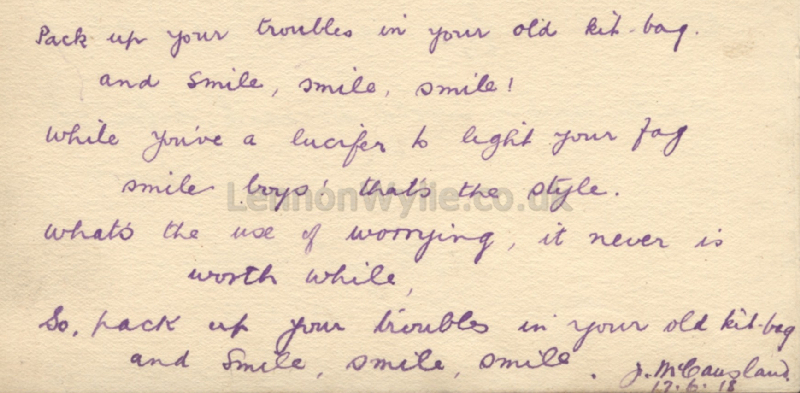 Pack up your troubles in your old kit-bag.
and smile, smile, smile!
While you've a lucifer to light your fag
smile boys! thats the style.
LennonWylie.co.uk
What's the use of worrying, it never is
worth while,
So, pack up your troubles in your old kit-bag
and Smile, smile, smile.
J. McCausland
17.6.18